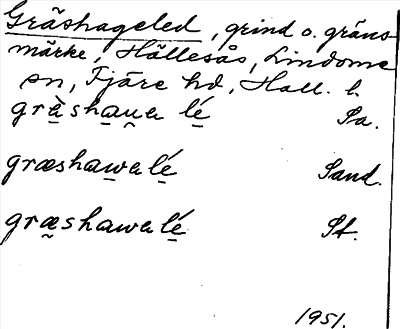 Gräshageled, grind o. gräns-
märke, Hällesås, Lindome
sn, Fjäre hd, Hall. l.
græ̀shau̯a lé̱ Sa.
græshawalé̱ Sand.
græshawalé̱ St.
1951.